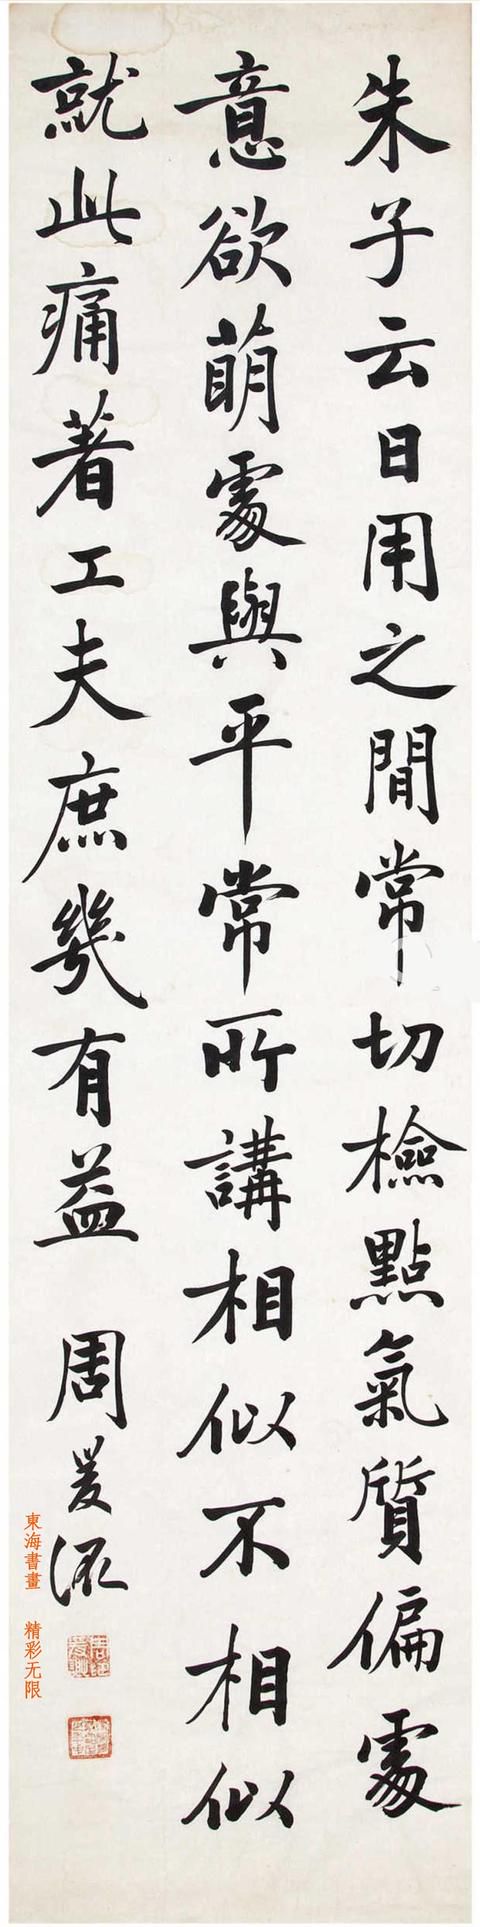 朱子云日用之間常切檢點氣質偏處
意欲萌處與平常所講相似不相似
就此痛著工夫庶幾有益
周爰諏
東海書畫 精彩无限